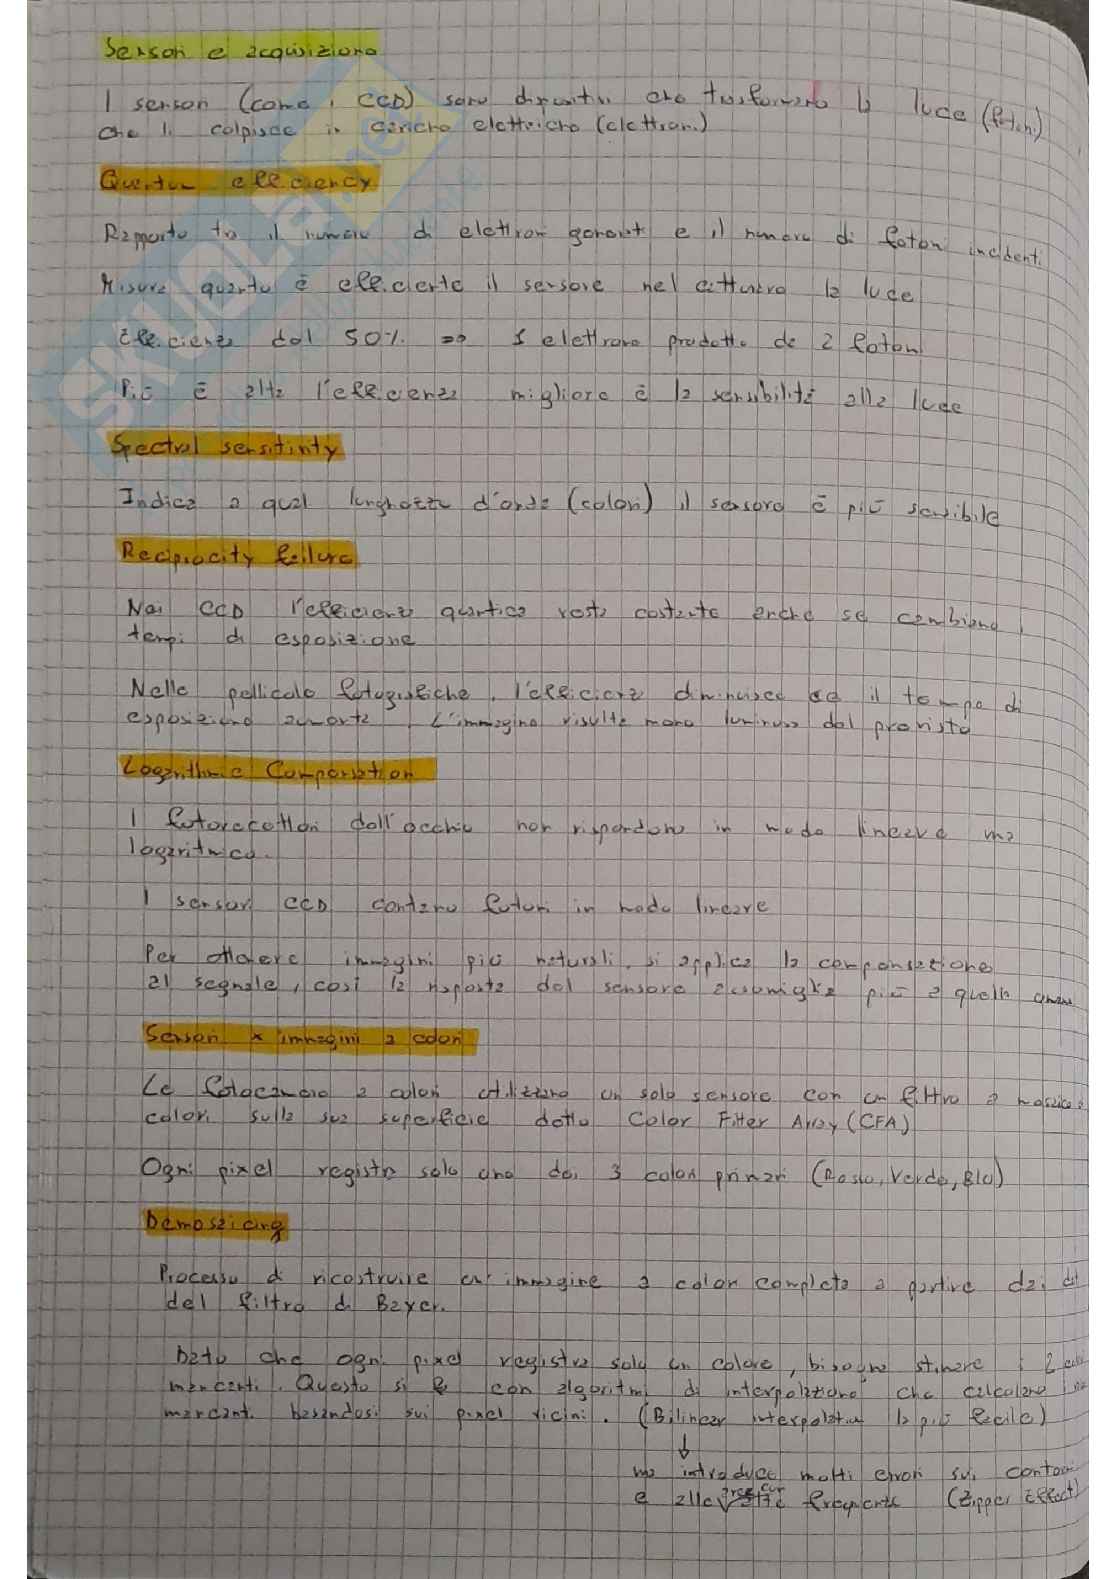 Sensori e acquisizione
I sensori (come i CCD) sono dispositivi che trasformano la luce (fotoni)
che li colpisce in cariche elettriche (elettroni)
Quantum efficiency
Rapporto tra il numero di elettroni generati e il numero di fotoni incidenti
Misura quanto è efficiente il sensore nel catturare la luce
Efficienza del 50% => 1 elettrone prodotto da 2 fotoni
Più è alta l'efficienza migliore è la sensibilità alla luce
Spectral sensitivity
Indica a qual lunghezza d'onda (colori) il sensore è più sensibile
Reciprocity failure
Nei CCD l'efficienza quantica resta costante anche se cambiano i
tempi di esposizione
Nelle pellicole fotografiche, l'efficienza diminuisce se il tempo di
esposizione aumenta. L'immagine risulta meno luminosa del previsto
Logarithmic Compensation
I fotorecettori dell'occhio non rispondono in modo lineare ma
logaritmico.
I sensori CCD contano fotoni in modo lineare
Per ottenere immagini più naturali, si applica la compensazione
al segnale, così la risposta del sensore assomiglia più a quella umana
Sensori x immagini a colori
Le fotocamere a colori utilizzano un solo sensore con un filtro a mosaico
colori sulla sua superficie detto Color Filter Array (CFA)
Ogni pixel registra solo uno dei 3 colori primari (Rosso, Verde, Blu)
Demosaicing
Processo di ricostruire un'immagine a colori completa a partire dai dati
del filtro di Bayer.
Dato che ogni pixel registra solo un colore, bisogna stimare i 2 colori
mancanti. Questo si fa con algoritmi di interpolazione che calcolano i
mancanti basandosi sui pixel vicini. (Bilinear interpolation la più facile)
↓
ma introduce molti errori sui contorni
e alle alte frequenze (Zipper Effect)
SKUOLA.net